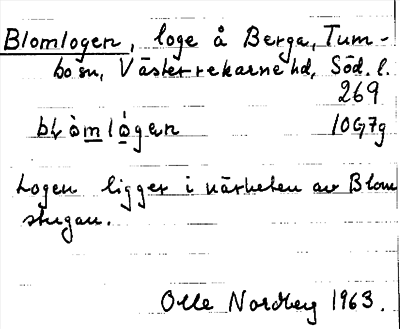 Blomlogen, loge å Berga, Tum-
bo sn, Västerrekarne hd, Söd. l.
269
blòmlógen 10G7g
Logen ligger i närheten av Blom
stugan.
Olle Nordberg 1963.